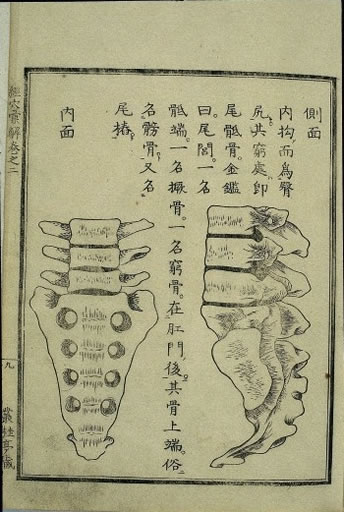 側面
内拘、而爲臀
尻、其窮處、即
尾骶骨。金鑑
曰、尾閭。一名
骶端。一名橛骨。一名窮骨。在肛門後。其骨上端。俗
名髈骨。又名
尾樁。
内面
經穴彙解卷之二
九
叢桂亭藏